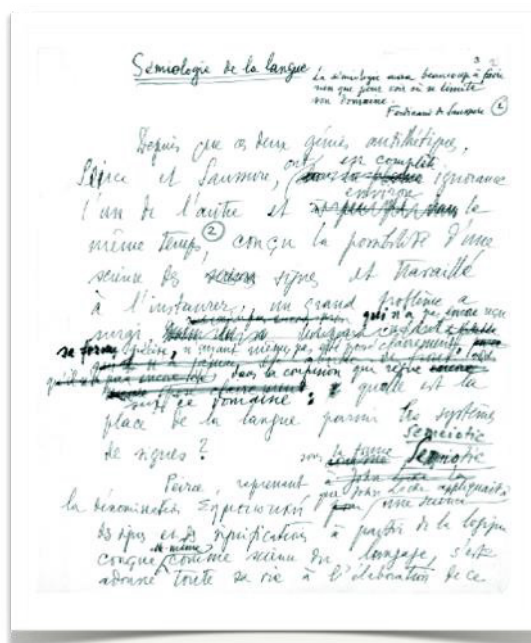 3 2
Sémiologie de la langue
La sémiologie aura beaucoup à faire
rien que pour voir où se limite
son domaine.
Ferdinand de Saussure (1)
Depuis que ces deux génies antithétiques,
Peirce et Saussure, ont en complète ignorance
l'un de l'autre et environ le
même temps (2), conçu la possibilité d'une
science des signes et travaillé
à l'instaurer, un grand problème a
surgi qui n'a pas encore reçu
sa forme précise, n'ayant même pas été posé clairement,
dans la confusion qui règne
sur ce domaine : quelle est la
place de la langue parmi les systèmes
de signes ?
sous la forme semeiotic Semiotic
Peirce, reprenant
la dénomination Σημειωτική que John Locke appliquait à une science
des signes et des significations à partir de la logique
conçue elle-même comme science du langage, s'est
adonné toute sa vie à l'élaboration de ce